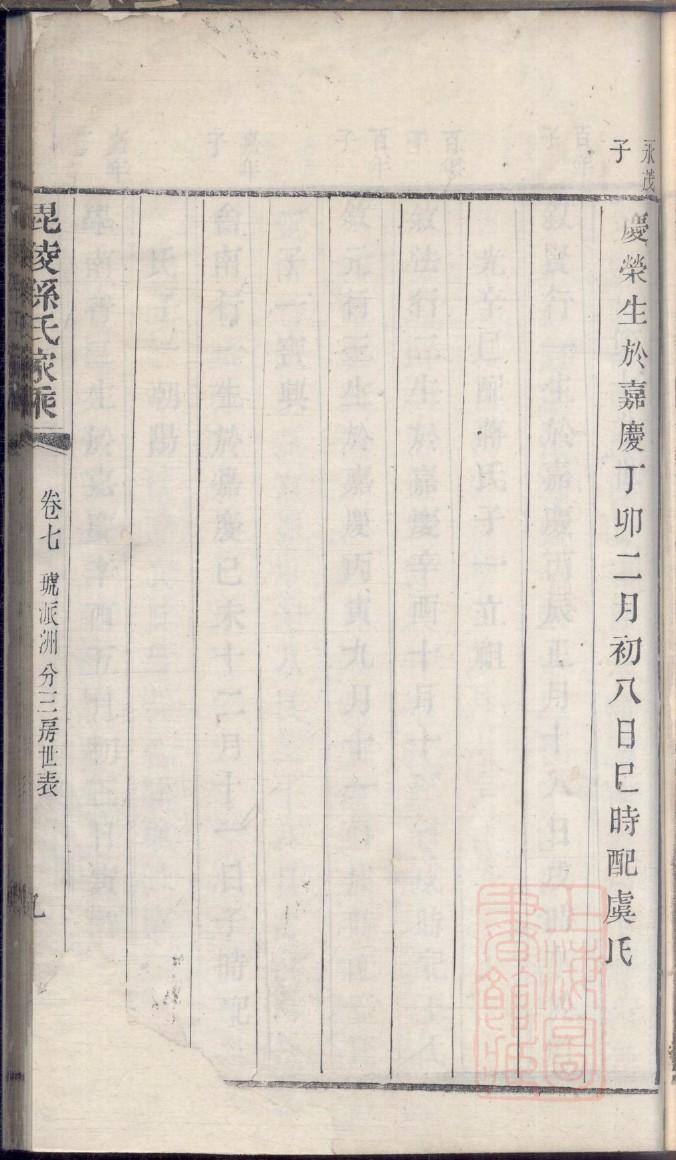 永茂
子
慶榮生於嘉慶丁卯二月初八日巳時配虞氏
毘陵孫氏家乘
卷七 琥派洲分三房世表
九